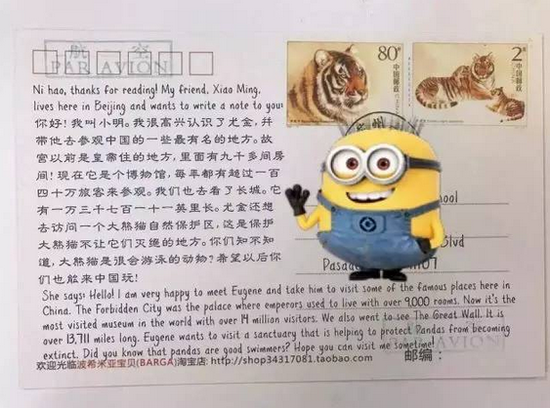 航 空
PAR AVION
Ni hao, thanks for reading! My friend, Xiao Ming,
lives here in Beijing and wants to write a note to you
你好！我叫小明。我很高兴认识了尤金，并
带他去参观中国的一些最有名的地方。故
宫以前是皇帝住的地方，里面有九千多间房
间！现在它是个博物馆，每年都有超过一百
四十万旅客来参观。我们也去看了长城。它
有一万三千七百一十一英里长。尤金还想
去访问一个大熊猫自然保护区，这是保护
大熊猫不让它们灭绝的地方。你们知不知
道，大熊猫是很会游泳的动物？希望以后你
们也能来中国玩！
She says: Hello! I am very happy to meet Eugene and take him to visit some of the famous places here in
China. The Forbidden City was the palace where emperors used to live with over 9,000 rooms. Now it's the
most visited museum in the world with over 14 million visitors. We also went to see The Great Wall. It is
over 13,711 miles long. Eugene wants to visit a sanctuary that is helping to protect Pandas from becoming
extinct. Did you know that pandas are good swimmers? Hope you can visit me sometime!
欢迎光临波希米亚宝贝(BARGA)淘宝店: http://shop34317081.taobao.com
80分
中国邮政
2元
中国邮政
州
ool
Blvd
Pasad
07
PAR AVION
邮编：